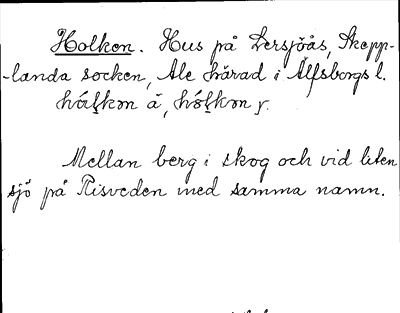 Holken. Hus på Lersjöås, Skepp-
-landa socken, Ale härad i Älfsborgs l.
hǻl̠kɷn ä, hól̠kɷn y.
Mellan berg i skog och vid liten
sjö på Risveden med samma namn.